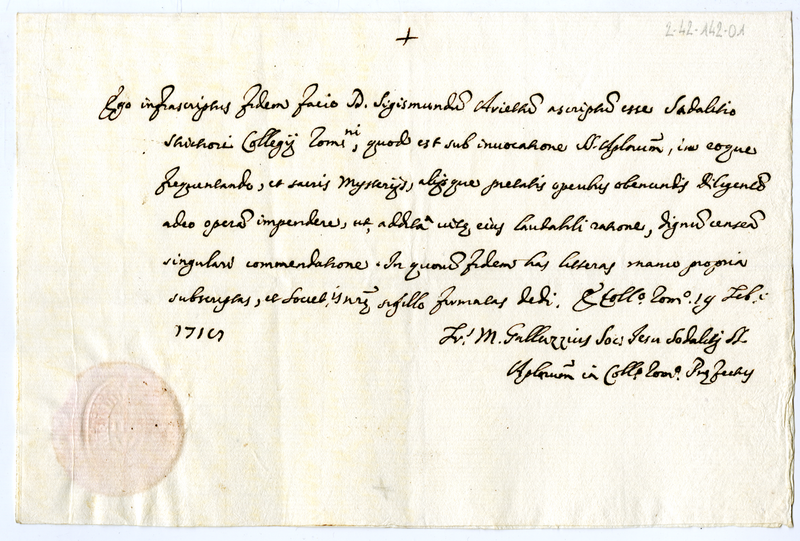 +
2-42-142-01
Ego infrascriptus fidem facio D. Sigismundũ ascriptũ esse Sodalitio
Collegij Romni, quod est sub invocatione SS. Aplorum̃, in eoque
frequentando, et sacris Mysterijs, alijsque pietatis operibus obeundis diligentẽ
adeo operã impendere, ut, addita vitę eius laudabili ratione, dignũ censeã
singulari commendatione. In quorũ fidem has litteras manu propria
subscriptas, et Societ.is nrę sigillo firmatas dedi. Ex Coll.o Rom.o 19 Feb.
Fr. M. Galluzzius Soc. Iesu Sodalitij SS.
Aplorum̃ in Coll.o Rom.o Pręfectus